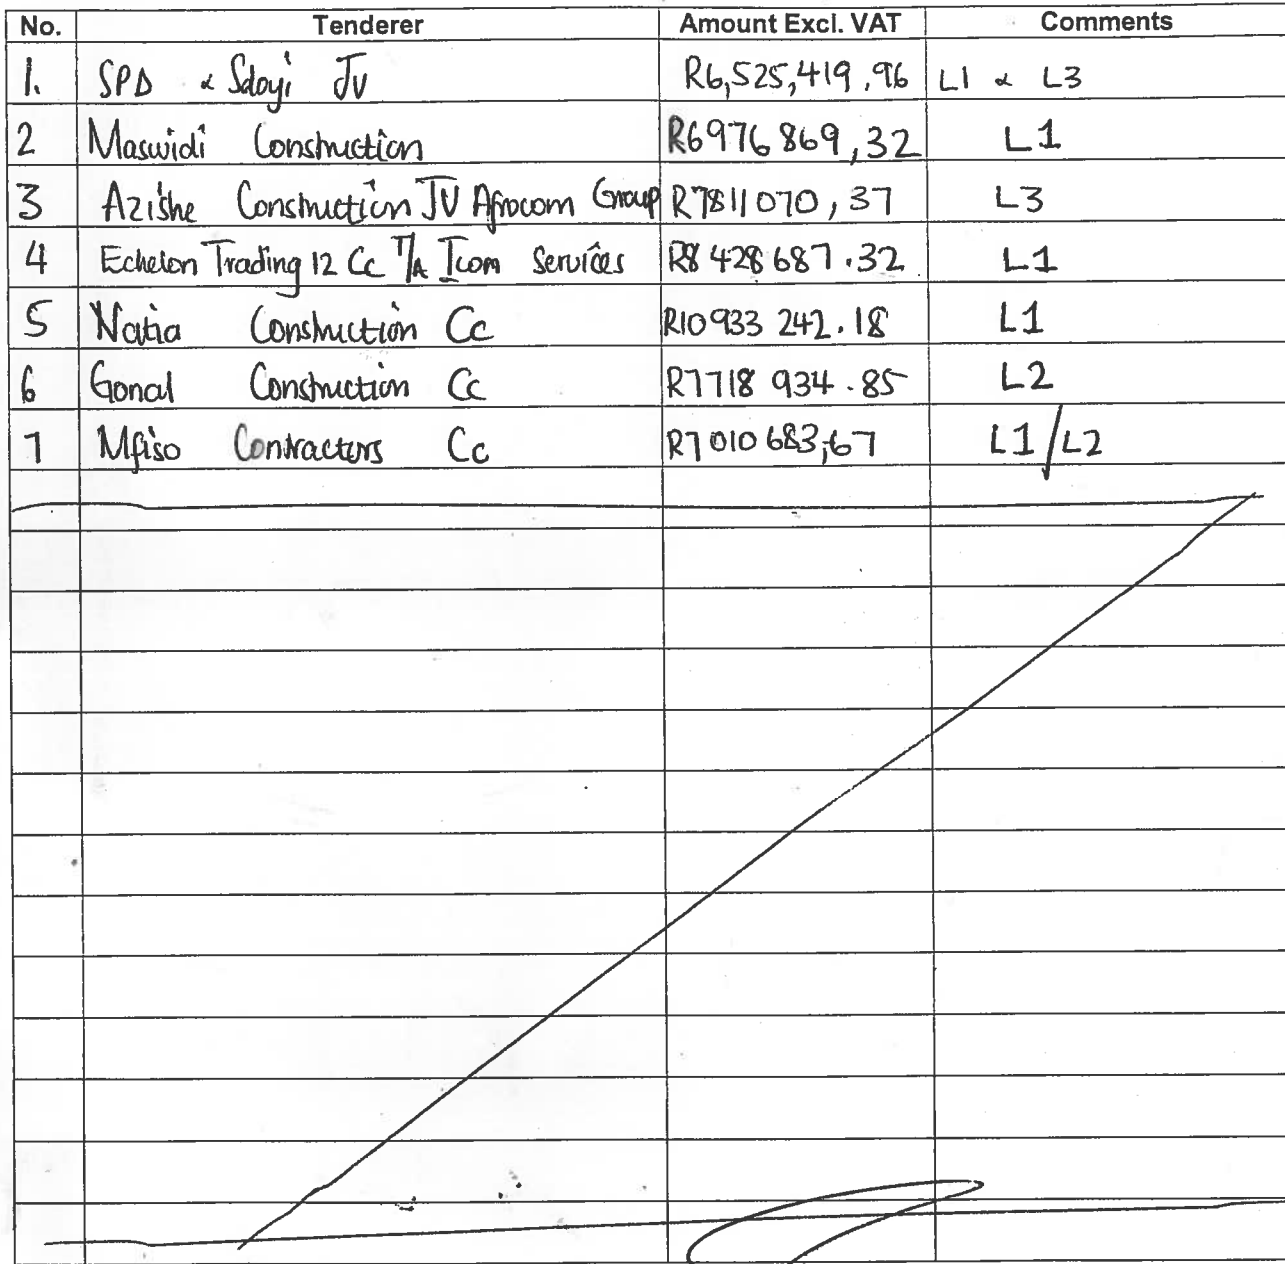 No. Tenderer Amount Excl. VAT Comments
1. SPD & Sdoyi JV R6,525,419,96 L1 & L3
2 Maswidi Construction R6976 869,32 L1
3 Azishe Construction JV Afrocom Group R7811070,37 L3
4 Echelon Trading 12 Cc T/A Icom Services R8 428 687.32 L1
5 Natia Construction Cc R10 933 242.18 L1
6 Gonal Construction Cc R7718 934.85 L2
7 Mfiso Contractors Cc R7 010 683,67 L1/L2